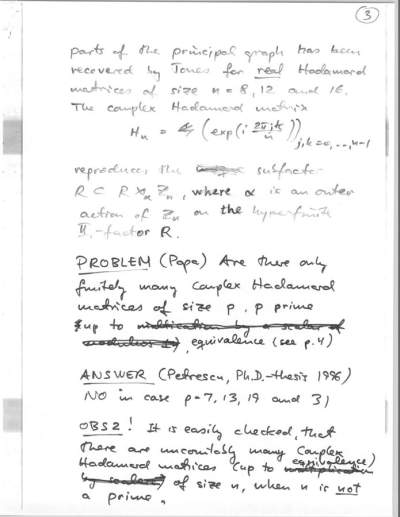 3
parts of the principal graph has been
recovered by Jones for real Hadamard
matrices of size n = 8, 12 and 16.
The complex Hadamard matrix
Hn = (exp(i 2πjk/n))j,k=0,...,n-1
reproduces the subfactor
R ⊂ R ⋊α Zn, where α is an outer
action of Zn on the hyperfinite
II1-factor R.
PROBLEM (Popa) Are there only
finitely many complex Hadamard
matrices of size p, p prime
(up to equivalence (see p.4)
ANSWER (Petrescu, Ph.D.-thesis 1996)
NO in case p=7, 13, 19 and 31
OBS2! It is easily checked, that
there are uncountably many complex
Hadamard matrices (up to equivalence)
of size n, when n is not
a prime.